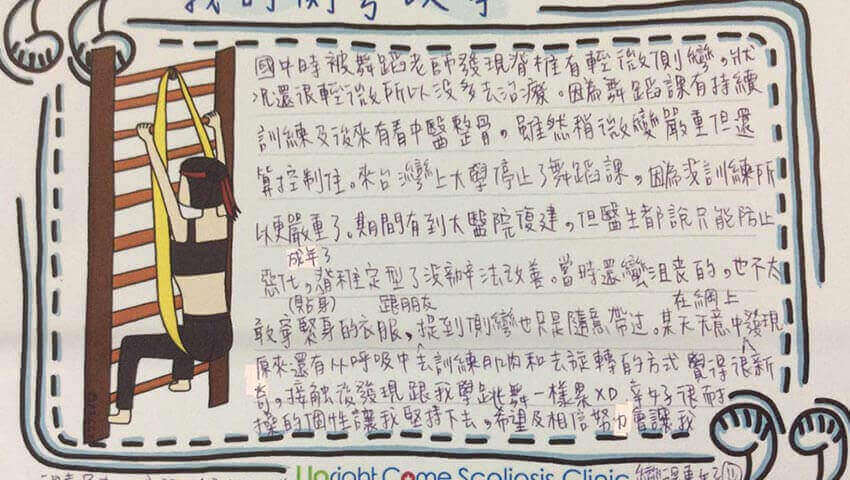 我的側彎故事
國中時被舞蹈老師發現脊椎有輕微側彎，狀
況還很輕微所以沒多去治療。因為舞蹈課有持續
訓練及後來有看中醫整骨，雖然稍微變嚴重但還
算控制住。來台灣上大學停止了舞蹈課，因為沒訓練所
以更嚴重了。期間有到大醫院復建，但醫生都說只能防止
成年了
惡化，脊椎定型了沒辦法改善。當時還蠻沮喪的，也不太
(貼身) 跟朋友 在網上
敢穿緊身的衣服，提到側彎也只是隨意帶過。某天無意中發現
原來還有從呼吸中去訓練肌肉和去旋轉的方式 覺得很新
奇。接觸後發現跟我學跳舞一樣累XD 幸好很耐
操的個性讓我堅持下去。希望及相信努力會讓我
Upright Come Scoliosis Clinic 變得更好